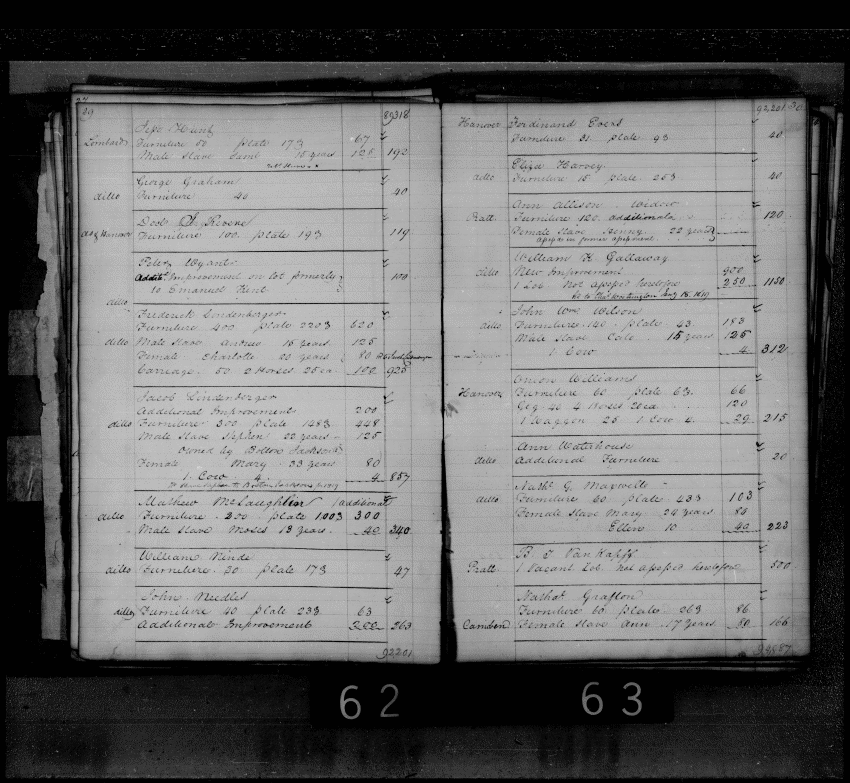 29 89318
Hunt
Lombard Furniture 50 plate 173 67
Male Slave Saml 15 years 125 192
George Graham
ditto Furniture 40 40
Doct
do & Hanover Furniture 100. plate 193 119
Peter Wyant
Addit. Improvement on lot formerly 100
to Emanuel Kent
ditto
Frederick Lindenberger
Furniture 400 plate 2203 620
ditto Male Slave Andrew 16 years 125
Female Charlotte 20 years 80
Carriage 50 2 Horses 25 ea. 100 925
Jacob Lindenberger
Additional Improvements 200
ditto Furniture 300 plate 1483 448
Male Slave Stephen 22 years 125
Owned by Bolton Jackson
Female Mary 33 years 80
1 Cow 4 4 857
Mathew McLaughlin (additional
ditto Furniture 200 plate 1003 300
Male Slave Moses 13 years 40 340
William Ninde
ditto Furniture 30 plate 173 47
John Needles
ditto Furniture 40 plate 233 63
Additional Improvement 200 263
92201
92,201 30
Hanover Ferdinand
Furniture 31 plate 93 40
Eliza Harvey
ditto Furniture 15 plate 253 40
Ann Allison Widow
Pratt Furniture 120 additional 120
Female Slave Henny 22 years
William H Gallaway
ditto New Improvement 900
1 Lot Not assessed heretofore 250 1150
John Wilson
ditto Furniture 140 plate 43 183
Male Slave Cale 15 years 125
1 Cow 4 312
Williams
Hanover Furniture 60 plate 63 66
Gig 40 4 Horses 20 ea 120
1 Waggon 25 1 Cow 4 29 215
Ann Waterhouse
ditto Additional Furniture 20
Nathl G. Maxwell
ditto Furniture 60 plate 433 103
Female Slave Mary 24 years 80
Ellen 10 40 223
B J Van Kapff
Pratt 1 Vacant Lot not assessed heretofore 500
Nathl Grafton
Furniture 60 plate 263 86
Camden Female Slave Ann 17 years 80 166
62 63